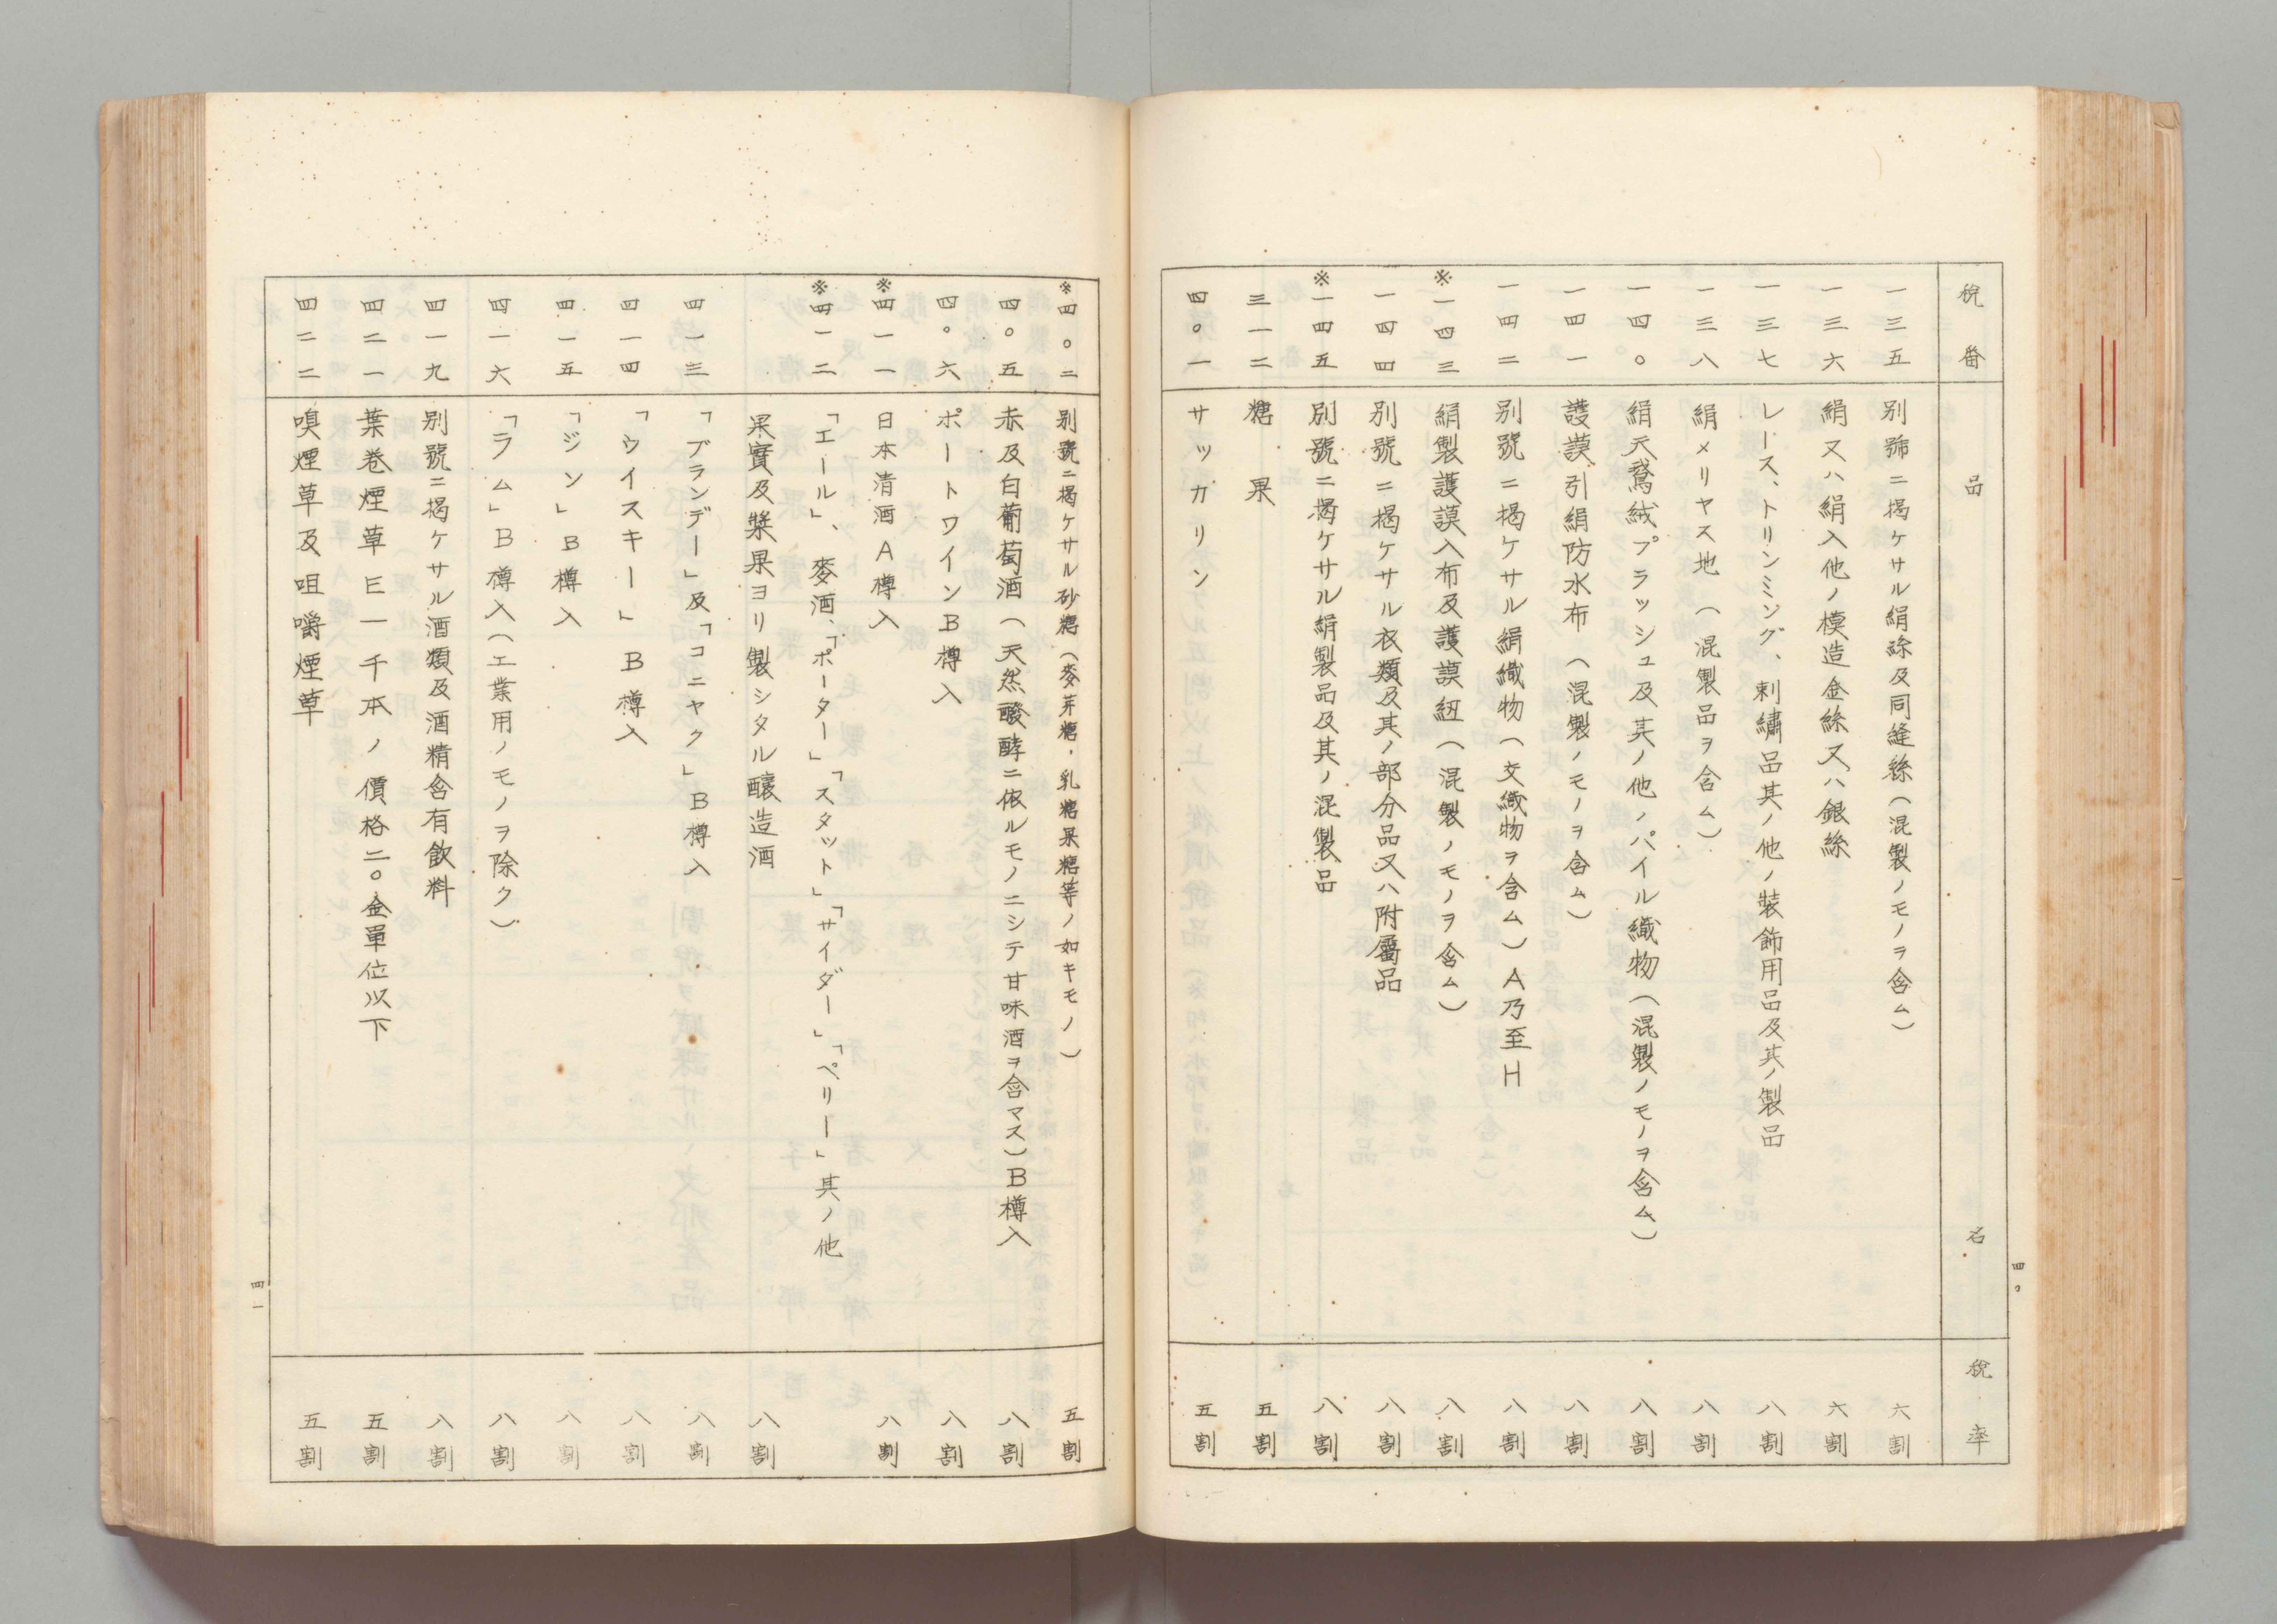 稅番 品名 稅率
一三五 別號ニ揭ケサル絹絲及同縫絲(混製ノモノヲ含ム) 六割
一三六 絹又ハ絹入他ノ模造金絲又ハ銀絲 六割
一三七 レース、トリンミング、刺繡品其ノ他ノ裝飾用品及其ノ製品 八割
一三八 絹メリヤス地(混製品ヲ含ム) 八割
一四〇 絹天鵞絨プラッシュ及其ノ他ノパイル織物(混製ノモノヲ含ム) 八割
一四一 護謨引絹防水布(混製ノモノヲ含ム) 八割
一四二 別號ニ揭ケサル絹織物(交織物ヲ含ム)A乃至H 八割
※一四三 絹製護謨入布及護謨紐(混製ノモノヲ含ム) 八割
一四四 別號ニ揭ケサル衣類及其ノ部分品又ハ附屬品 八割
※一四五 別號ニ揭ケサル絹製品及其ノ混製品 八割
三一二 糖果 五割
四〇一 サッカリン 五割
四〇
※四〇二 別號ニ揭ケサル砂糖(麥芽糖、乳糖果糖等ノ如キモノ) 五割
四〇五 赤及白葡萄酒(天然醱酵ニ依ルモノニシテ甘味酒ヲ含マス)B樽入 八割
四〇六 ポートワインB樽入 八割
※四一一 日本清酒A樽入 八割
※四一二 「エール」、麥酒、「ポーター」「スタット」「サイダー」「ペリー」其ノ他
果實及漿果ヨリ製シタル釀造酒 八割
四一三 「ブランデー」及「コニヤク」B樽入 八割
四一四 「ウイスキー」B樽入 八割
四一五 「ジン」B樽入 八割
四一六 「ラム」B樽入(工業用ノモノヲ除ク) 八割
四一九 別號ニ揭ケサル酒類及酒精含有飮料 八割
四二一 葉卷煙草E一千本ノ價格二〇金單位以下 五割
四二二 嗅煙草及咀嚼煙草 五割
四一